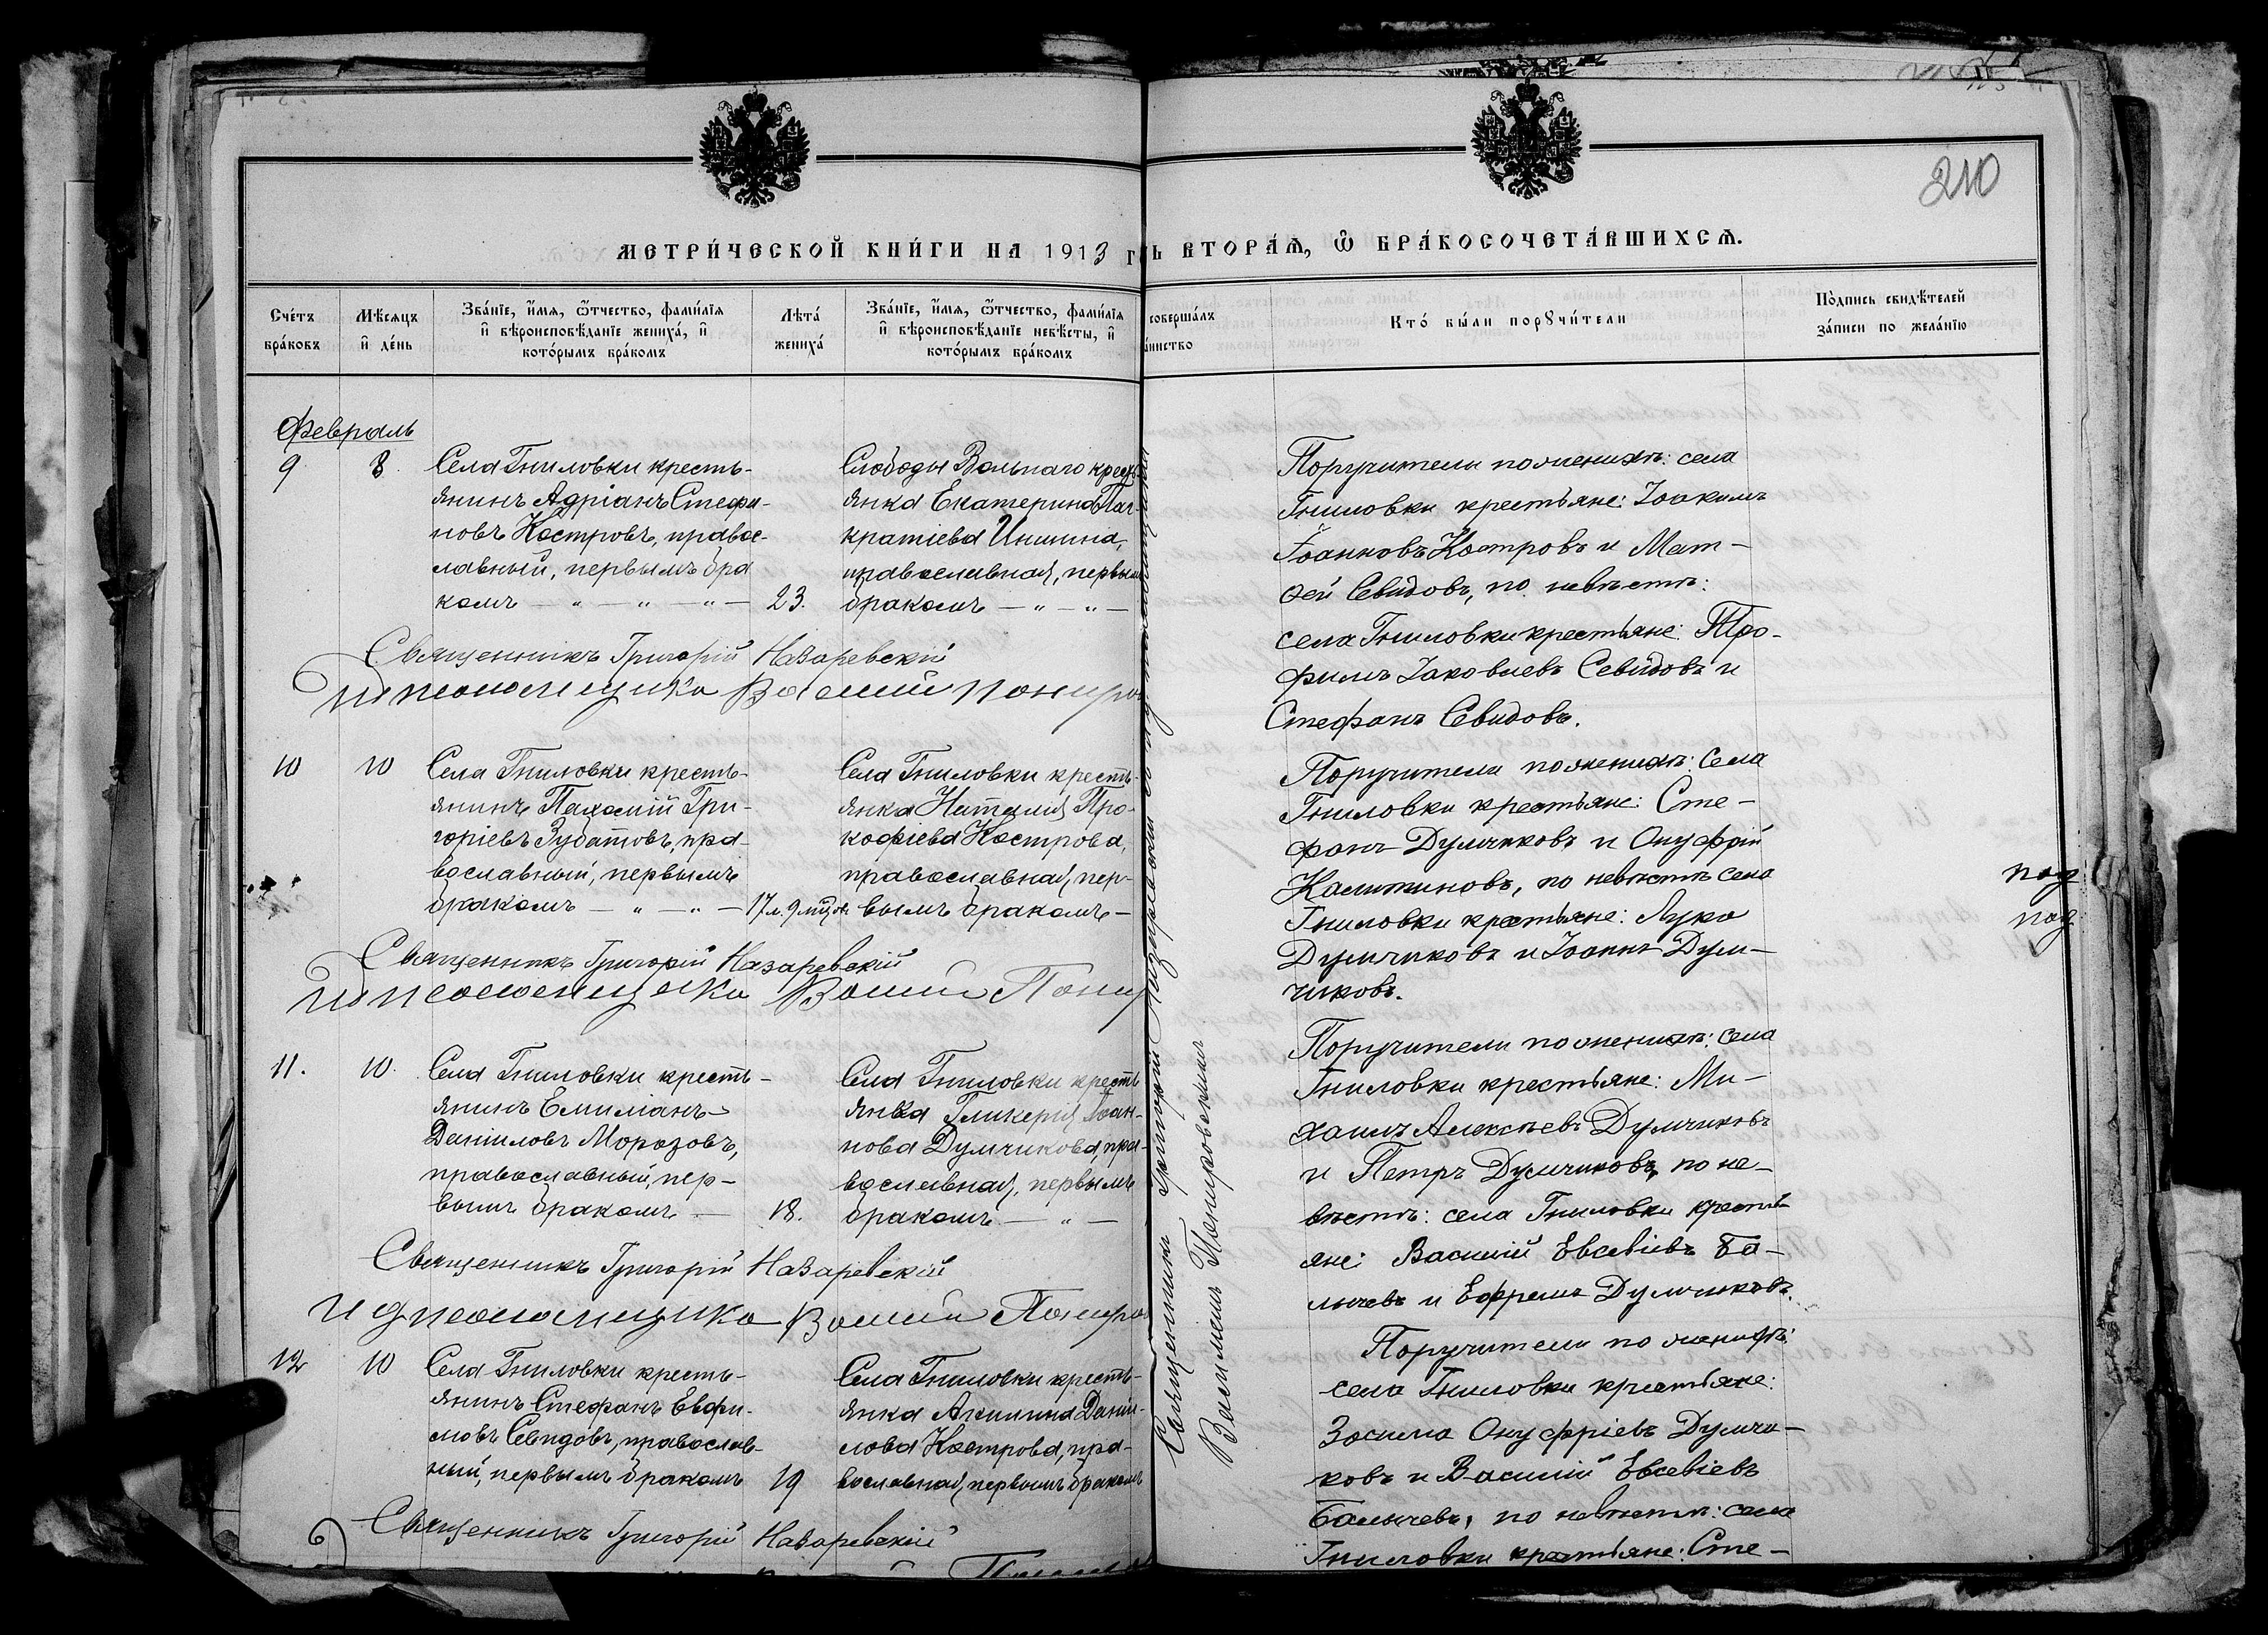 210
МЕТРИ́ЧЕСКОЙ КНИ́ГИ НА 1913 г
ь ВТОРА́Ѧ, Ѽ БРА́КОСОЧЕТА́ВШИХСѦ.
Сче́тъ бра́ковъ
Мѣ́сяцъ и҆ де́нь
Зва́нїе, и҆́мѧ, ѻ҆́тчество, фами́лїѧ
и҆ вѣроисповѣ́данїе жениха́, и҆
кото́рымъ бра́комъ
Лѣта́ жениха́
Зва́нїе, и҆́мѧ, ѻ҆́тчество, фами́лїѧ
и҆ вѣроисповѣ́данїе невѣ́сты, и҆
кото́рымъ бра́комъ
соверша́лъ
а́инство
Кто́ бы́ли порꙋчи́тели
По́дпись свидѣ́телей
за́писи по жела́нїю
Февраль
9 8.
Села Гниловки кресть-
янинъ Адріанъ Стефа-
новъ Костровъ, правос-
лавный, первымъ бра
комъ — " — " — " —
23.
Слободы Вольнаго крест
янка Екатерина Пан-
кратіева Иншина,
православная, первым
бракомъ — " — " —
Священникъ Григорій Назаревскій
Василій
Поручители по женихѣ: села
Гниловки крестьяне: Іоакимъ
Іоанновъ Костровъ и Мат-
ѳей Севидовъ, по невѣстѣ:
села Гниловки крестьяне: Тро-
фимъ Іаковлевъ Севидовъ и
Стефанъ Севидовъ.
10 10
Села Гниловки кресть-
янинъ Пахомій Гри-
горіевъ Зубатовъ, пра-
вославный, первымъ
бракомъ — " — " —
17 л. 9 мцов
Села Гниловки кресть-
янка Наталія Про-
кофіева Кострова,
православная, пер-
вымъ бракомъ —
Священникъ Григорій Назаревскій
Поручители по женихѣ: села
Гниловки крестьяне: Сте-
фанъ Думчиковъ и Онуфрій
Калитиновъ, по невѣстѣ села
Гниловки крестьяне: Лука
Думчиковъ и Іоаннъ Дум-
чиковъ.
под
под
11. 10.
Села Гниловки кресть-
янинъ Емиліанъ
Даніиловъ Морозовъ,
православный, пер-
вымъ бракомъ —
18.
Села Гниловки кресть
янка Гликерія Іоан-
нова Думчикова, пра-
вославная, первымъ
бракомъ — " —
Священникъ Григорій Назаревскій
Поручители по женихѣ: села
Гниловки крестьяне: Ми-
хаилъ Алексѣевъ Думчиковъ
и Петръ Думчиковъ, по не-
вѣстѣ: села Гниловки кресть-
яне: Василій Евсевіевъ Ба-
лычевъ и Ефремъ Думчиковъ.
12 10
Села Гниловки кресть-
янинъ Стефанъ Евфи-
мовъ Севидовъ, православ-
ный, первымъ бракомъ
19
Села Гниловки кресть-
янка Акилина Даніи-
лова Кострова, пра-
вославная, первымъ бракомъ
Священникъ Григорій Назаревскій
Поручители по женихѣ:
села Гниловки крестьяне:
Зосима Онуфріевъ Думчи-
ковъ и Василій Евсевіевъ
Балычевъ, по невѣстѣ: села
Гниловки крестьяне: Сте-
Священникъ Григорій Назаревскій